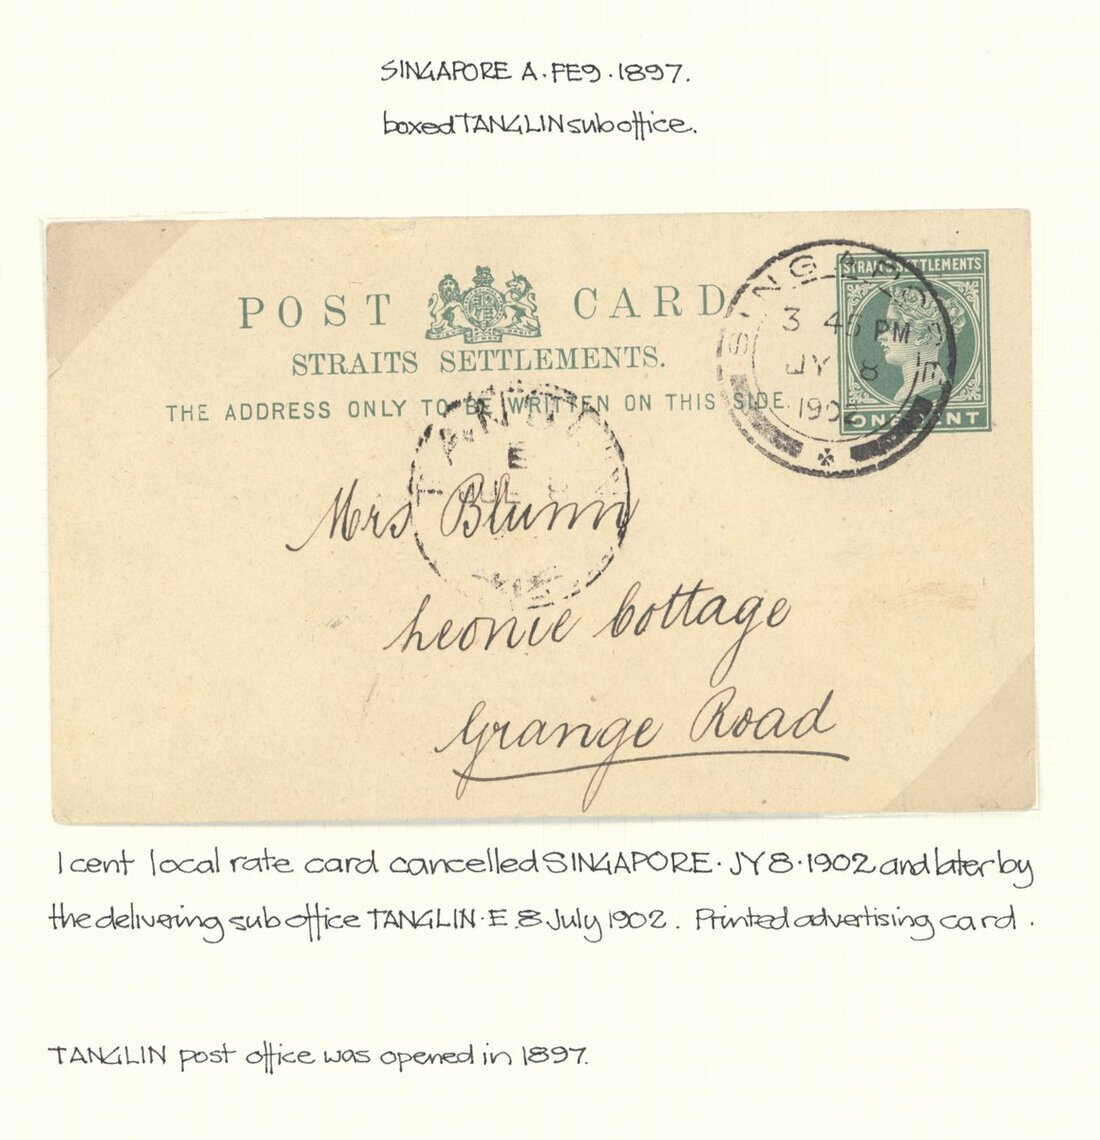 SINGAPORE A·FE9·1897.
boxed TANGLIN sub office.
POST CARD
STRAITS SETTLEMENTS.
THE ADDRESS ONLY TO BE WRITTEN ON THIS SIDE.
STRAITS SETTLEMENTS
ONE CENT
SINGAPORE
3 45 PM
JY 8
1902
TANGLIN
E
JUL 8
Mrs Blunn
Leonie Cottage
Grange Road
1 cent local rate card cancelled SINGAPORE·JY 8·1902 and later by
the delivering sub office TANGLIN·E.8 July 1902. Printed advertising card.
TANGLIN post office was opened in 1897.